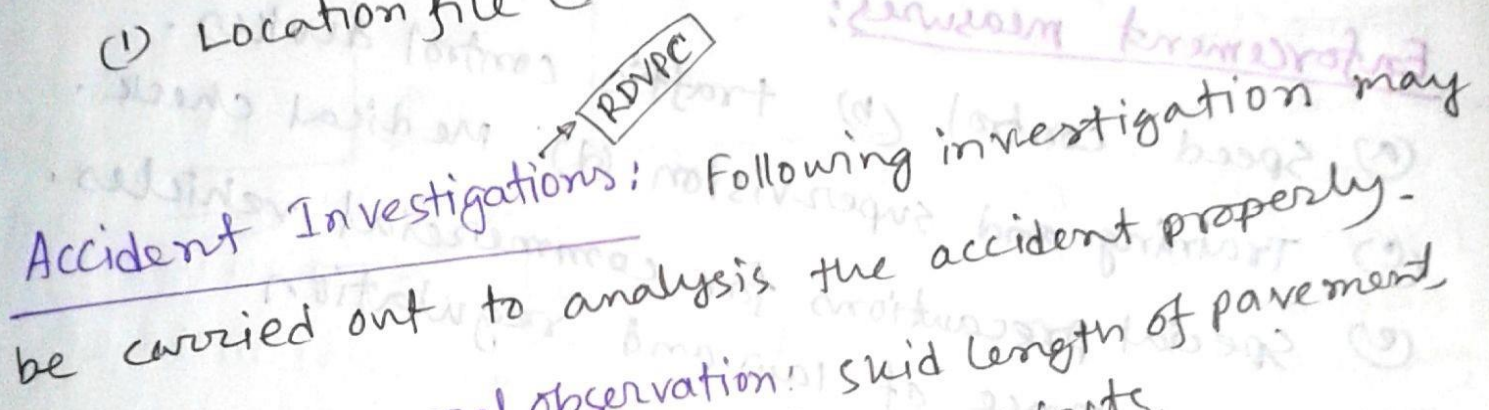 (1) Location file
RDVPC
Accident Investigations: Following investigation may
be carried out to analysis the accident properly.
observation: skid length of pavement